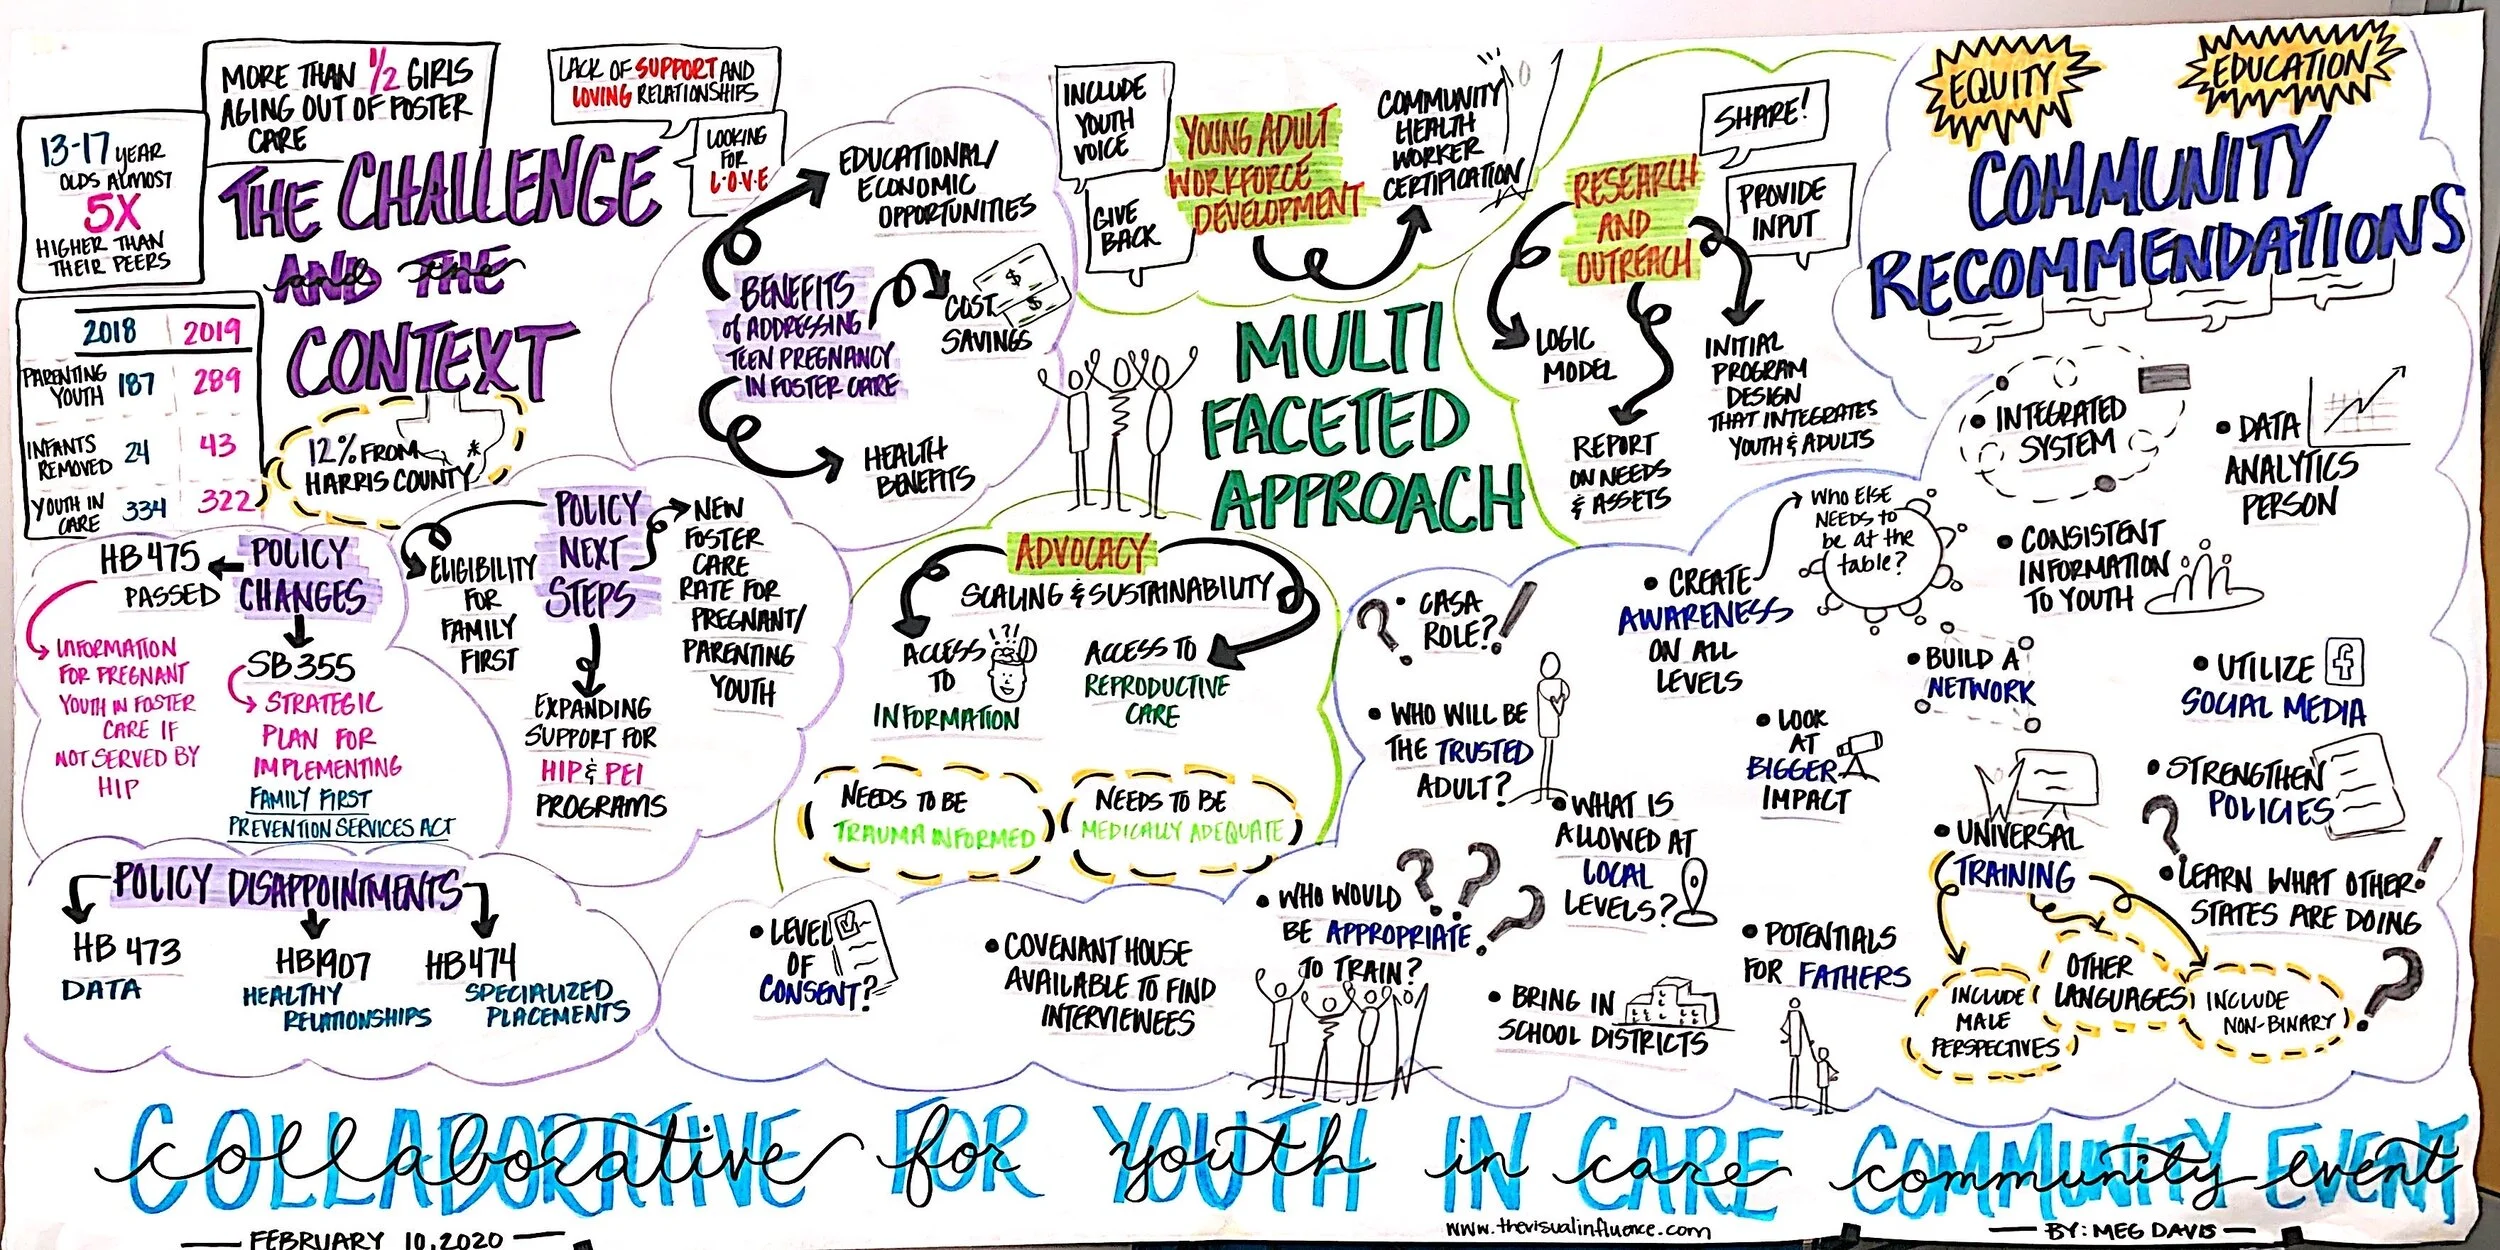 MORE THAN 1/2 GIRLS
AGING OUT OF FOSTER
CARE
13-17 YEAR
OLDS ALMOST
5X
HIGHER THAN
THEIR PEERS
LACK OF SUPPORT AND
LOVING RELATIONSHIPS
LOOKING
FOR
L·O·V·E
THE CHALLENGE
AND THE
CONTEXT
2018 2019
PARENTING
YOUTH 187 289
INFANTS
REMOVED 24 43
YOUTH IN
CARE 334 322
12% FROM
HARRIS COUNTY
POLICY
CHANGES
HB 475
PASSED
INFORMATION
FOR PREGNANT
YOUTH IN FOSTER
CARE IF
NOT SERVED BY
HIP
SB 355
STRATEGIC
PLAN FOR
IMPLEMENTING
FAMILY FIRST
PREVENTION SERVICES ACT
POLICY
NEXT
STEPS
ELIGIBILITY
FOR
FAMILY
FIRST
EXPANDING
SUPPORT FOR
HIP & PEI
PROGRAMS
NEW
FOSTER
CARE
RATE FOR
PREGNANT/
PARENTING
YOUTH
POLICY DISAPPOINTMENTS
HB 473
DATA
HB1907
HEALTHY
RELATIONSHIPS
HB 474
SPECIALIZED
PLACEMENTS
BENEFITS
OF ADDRESSING
TEEN PREGNANCY
IN FOSTER CARE
EDUCATIONAL/
ECONOMIC
OPPORTUNITIES
COST
SAVINGS
$
$
HEALTH
BENEFITS
MULTI
FACETED
APPROACH
INCLUDE
YOUTH
VOICE
GIVE
BACK
YOUNG ADULT
WORKFORCE
DEVELOPMENT
COMMUNITY
HEALTH
WORKER
CERTIFICATION
RESEARCH
AND
OUTREACH
SHARE!
PROVIDE
INPUT
LOGIC
MODEL
REPORT
ON NEEDS
& ASSETS
INITIAL
PROGRAM
DESIGN
THAT INTEGRATES
YOUTH & ADULTS
ADVOCACY
SCALING & SUSTAINABILITY
ACCESS
TO
INFORMATION
!??!
ACCESS TO
REPRODUCTIVE
CARE
NEEDS TO BE
TRAUMA INFORMED
NEEDS TO BE
MEDICALLY ADEQUATE
EQUITY
EDUCATION
COMMUNITY
RECOMMENDATIONS
• INTEGRATED
SYSTEM
• DATA
ANALYTICS
PERSON
• CONSISTENT
INFORMATION
TO YOUTH
• CREATE
AWARENESS
ON ALL
LEVELS
WHO ELSE
NEEDS TO
be AT the
table?
? • CASA
ROLE? !
• BUILD A
NETWORK
• UTILIZE f
SOCIAL MEDIA
• WHO WILL BE
THE TRUSTED
ADULT?
• LOOK
AT
BIGGER
IMPACT
• STRENGTHEN
POLICIES
• WHAT IS
ALLOWED AT
LOCAL
LEVELS?
• UNIVERSAL
TRAINING
INCLUDE
MALE
PERSPECTIVES
OTHER
LANGUAGES
INCLUDE
NON-BINARY
?
• LEARN WHAT OTHER !
STATES ARE DOING
?
• WHO WOULD
BE APPROPRIATE
TO TRAIN?
? ? ?
• LEVEL
OF
CONSENT?
• COVENANT HOUSE
AVAILABLE TO FIND
INTERVIEWEES
• BRING IN
SCHOOL DISTRICTS
• POTENTIALS
FOR FATHERS
COLLABORATIVE FOR YOUTH IN CARE COMMUNITY EVENT
FEBRUARY 10, 2020
www.thevisualinfluence.com
BY: MEG DAVIS